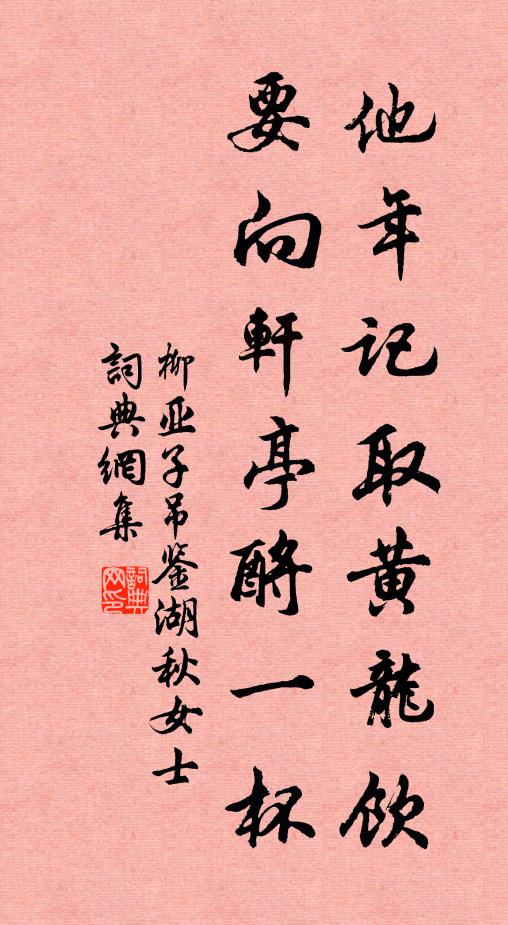 他年记取黄龍饮
要向軒亭酹一杯
柳亚子吊鉴湖秋女士
詞典網集
詞典网印